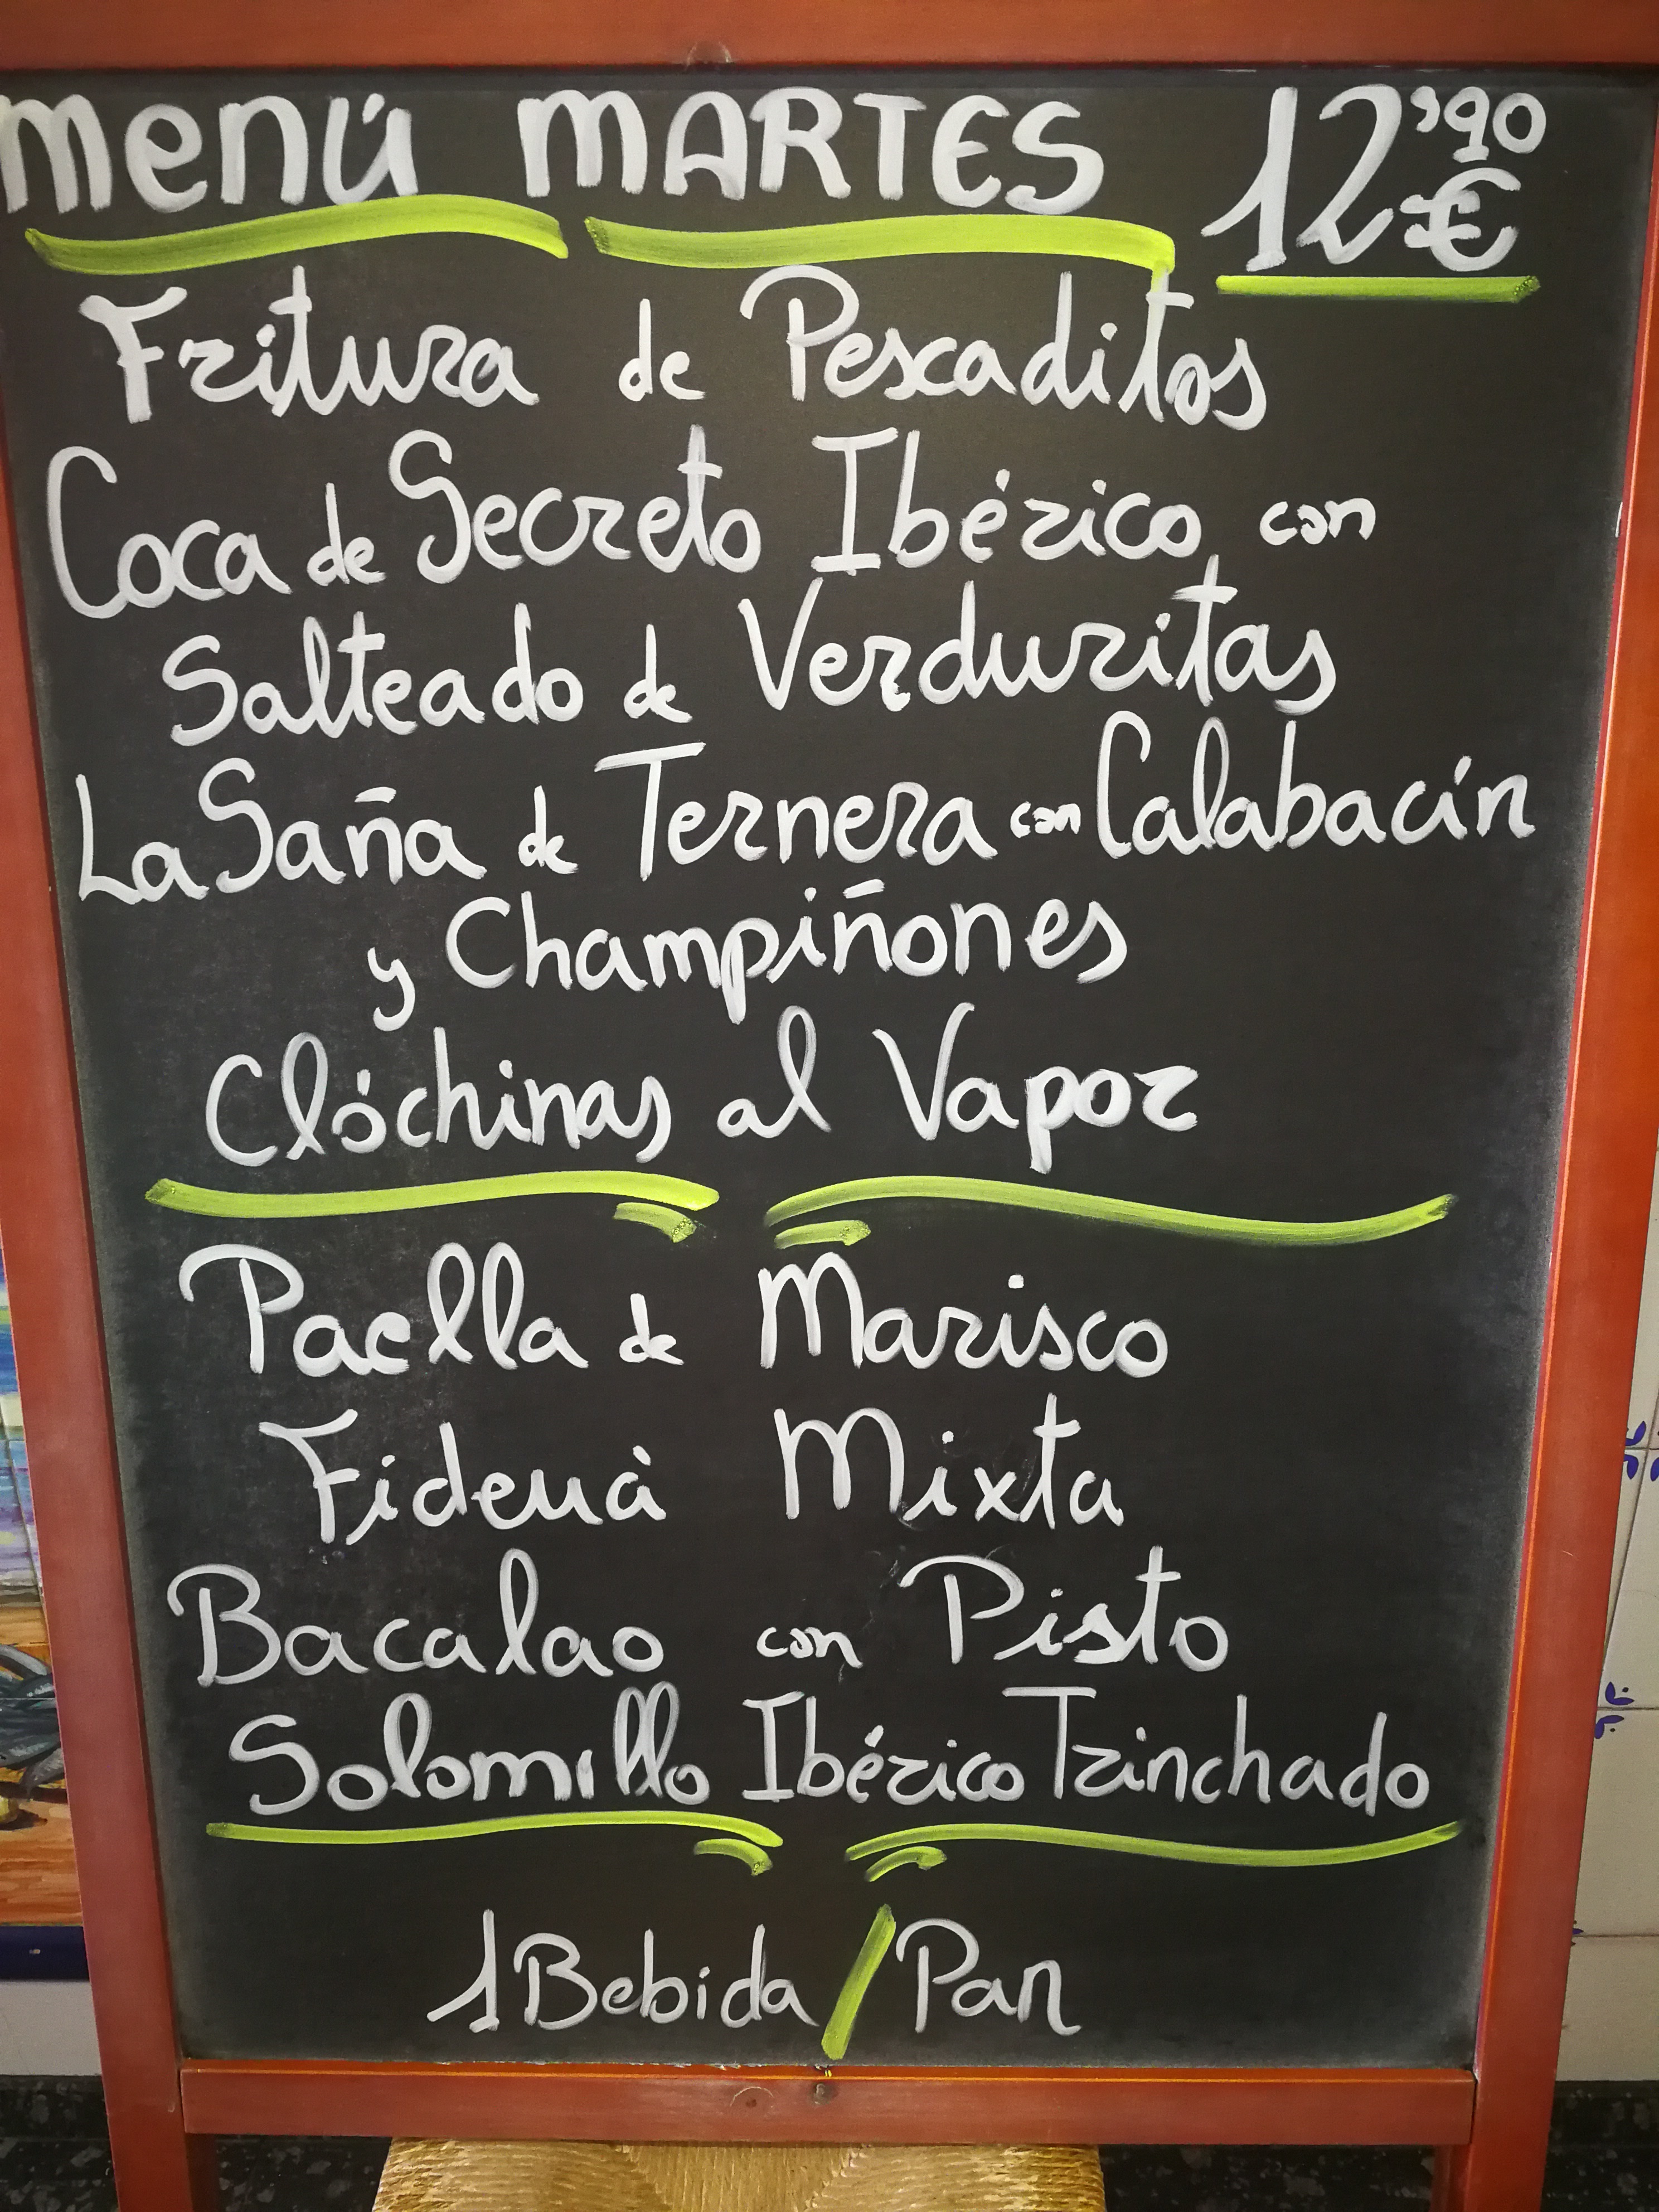 menú MARTES 12'90 €
Fritura de Pescaditos
Coca de Secreto Ibérico con
Salteado de Verduritas
LaSaña de Ternera con Calabacín
y Champiñones
Clóchinas al Vapor
Paella de Marisco
Fideuà Mixta
Bacalao con Pisto
Solomillo Ibérico Trinchado
1 Bebida / Pan